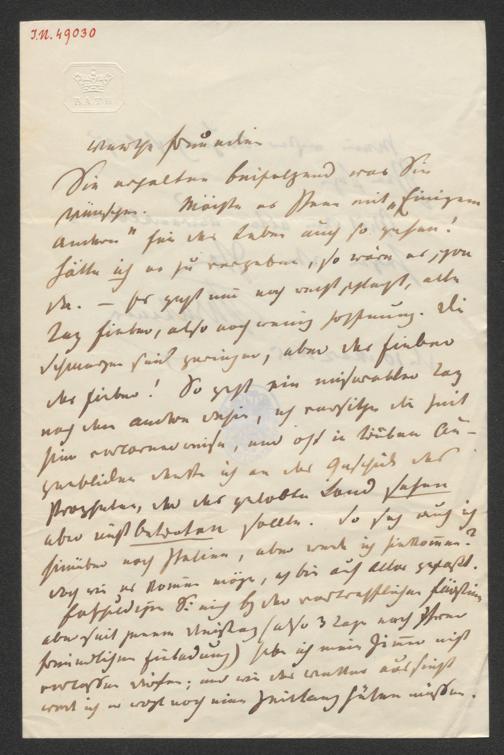 I.N. 49030
BATH
Werthe Freundin
Sie erhalten beifolgend was Sie
wünschen. Möchte es Ihnen mit „Einigem
Andern“ für das Leben auch so gehen!
Hätte ich es zu vergeben, so wäre es schon
da. — Es geht mir noch recht schlecht, alle
Tag Fieber, also noch wenig Hoffnung. Die
Schmerzen sind geringer, aber das Fieber
das Fieber! So geht ein miserabler Tag
nach dem andern dahin, ich versitze die Zeit
hier, und oft in trüben Au-
genblicken denke ich an das Geschick des
Propheten, der das gelobte Land sehen
aber nicht betreten sollte. So seh auch ich
hinüber nach Italien, aber werd ich hinkommen?
Doch wie es kommen möge, ich bin auf alles gefaßt.
Entschuldigen Sie mich bei der vortrefflichen Fürstin
aber seit jenem Dienstag (also 3 Tage nach Ihrer
freundlichen Einladung) habe ich mein Zimmer nicht
verlassen dürfen; und wie das Wetter aussieht
werd ich es wohl noch eine Zeitlang hüten müssen.